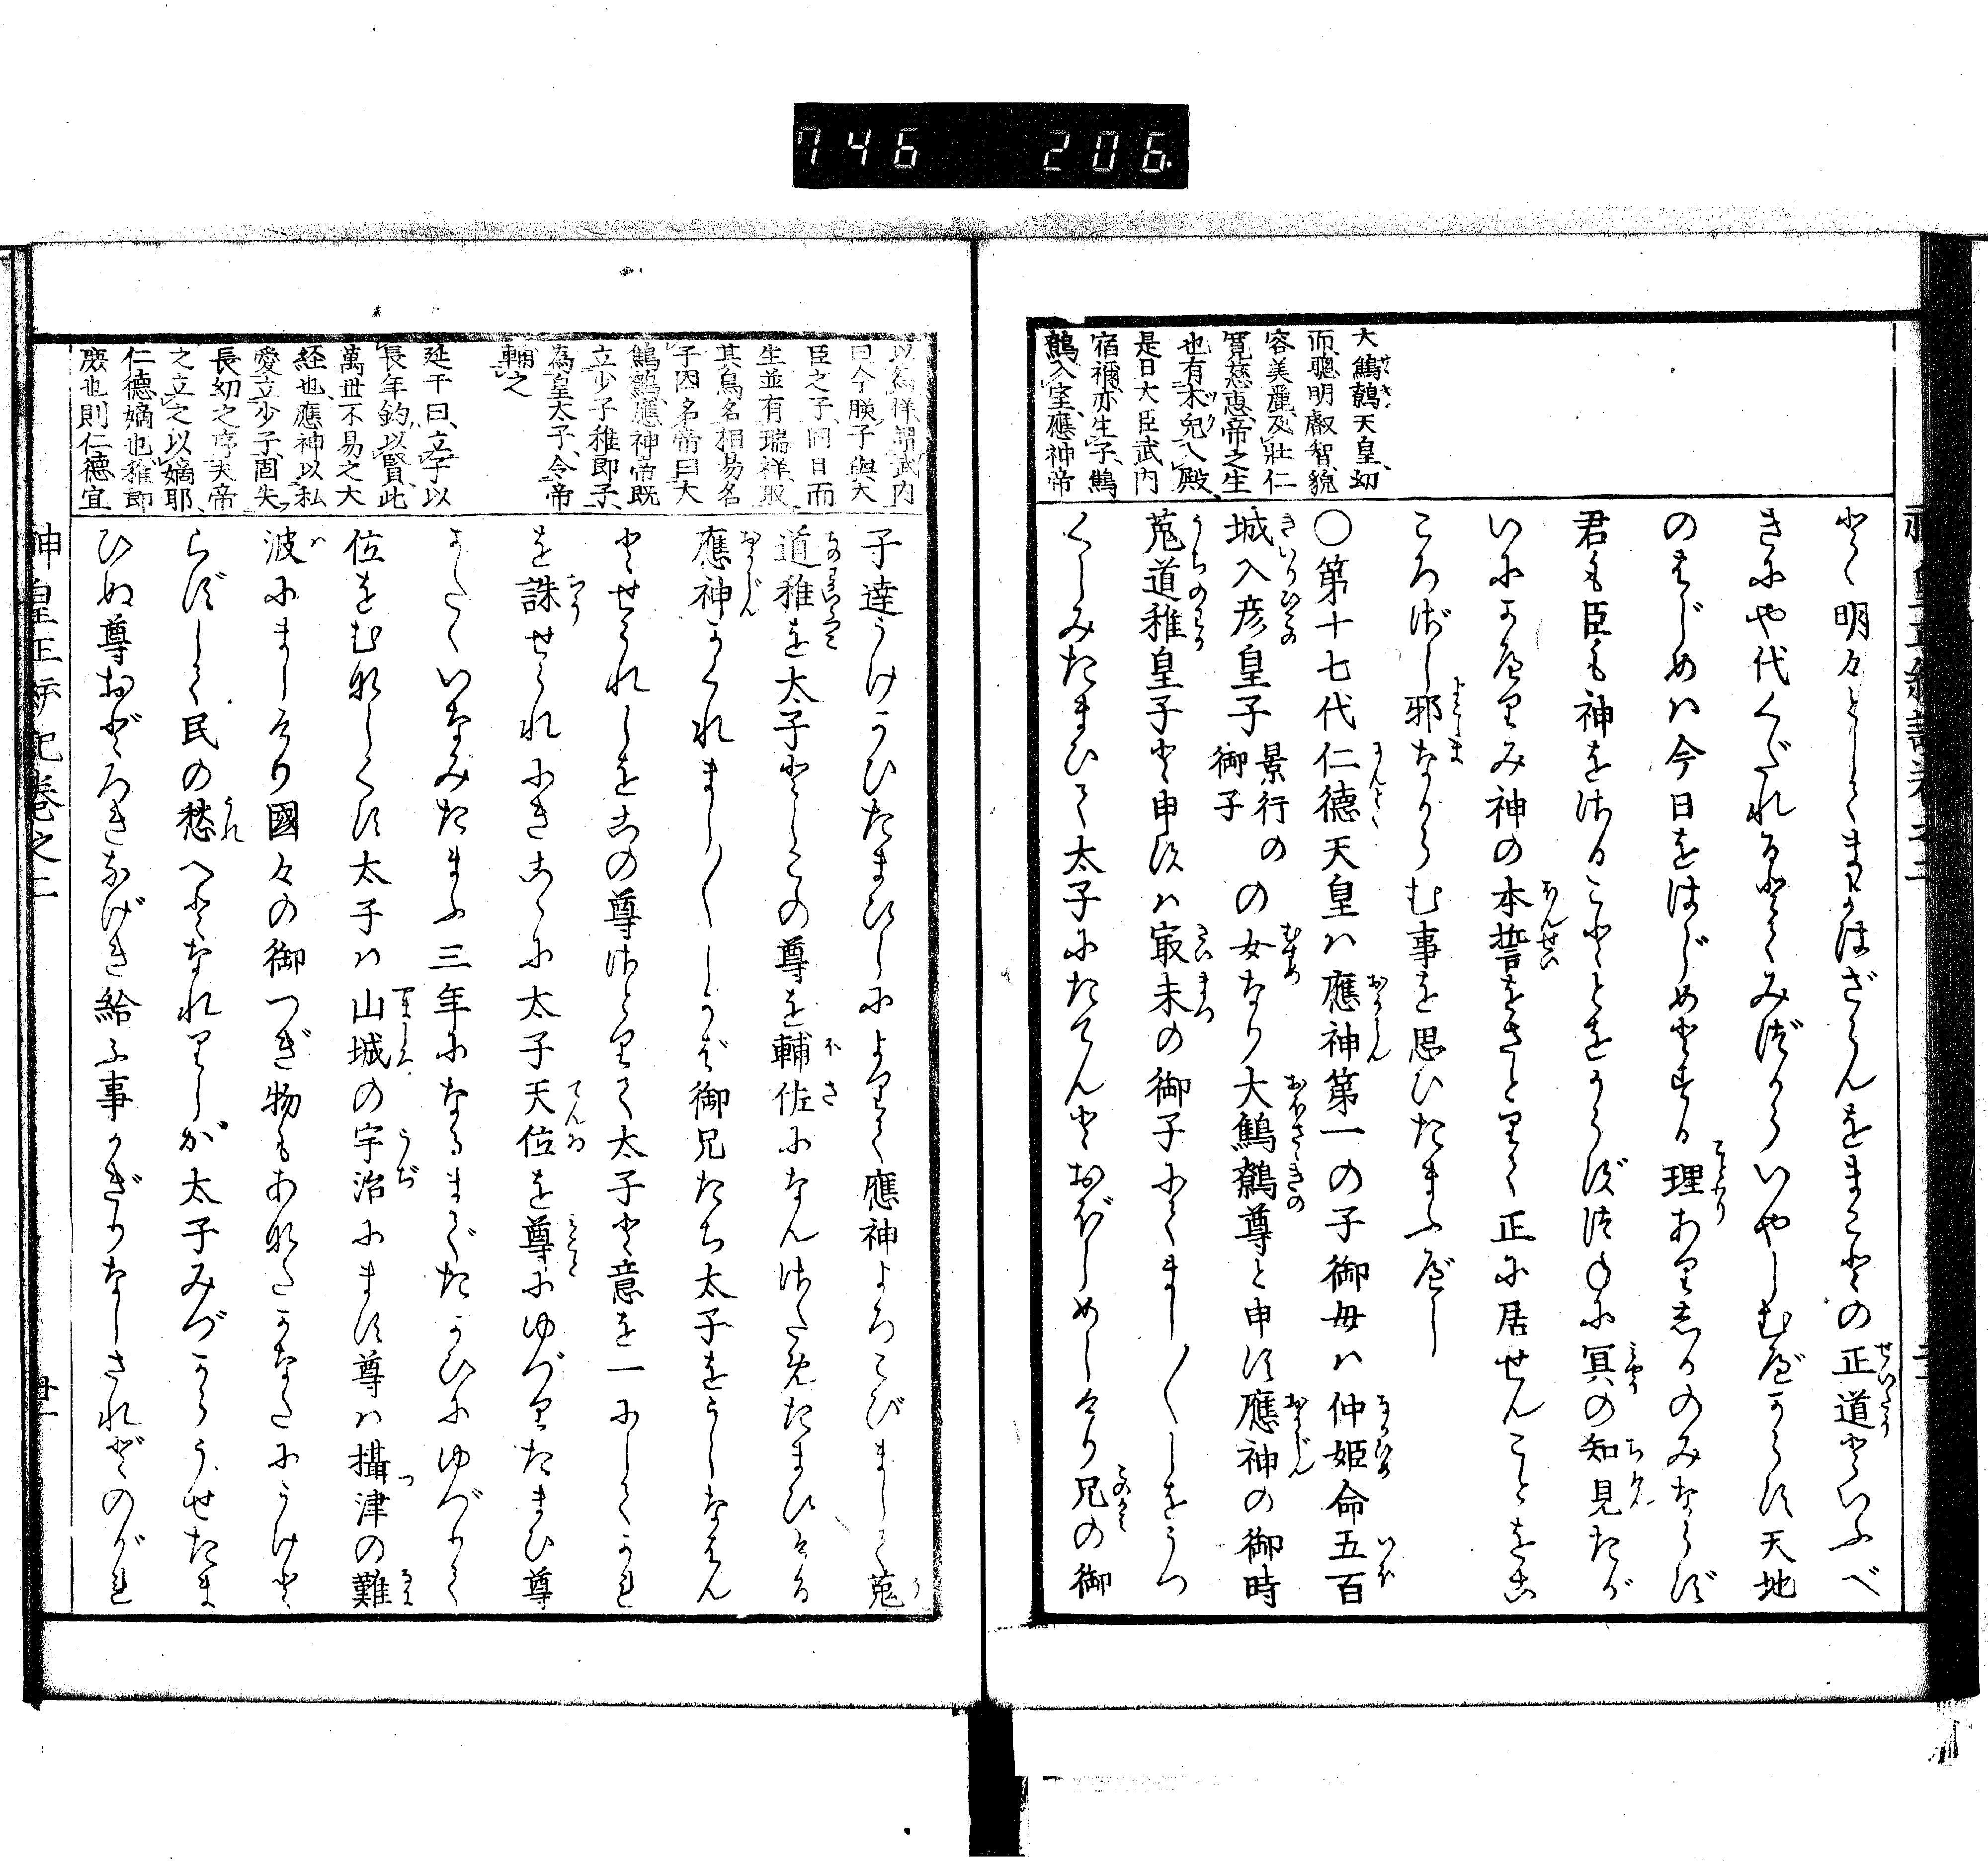 746 206
大鷦鷯天皇幼
而聰明叡智貌
容美麗及壯仁
寛慈惠帝之生
也有木兎入殿
是日大臣武内
宿禰亦生子鷦
鷯入室應神帝
として明々としてまよはざらんをまことの正道といふべ
きにや代くだれるとてみづからいやしむべからず天地
のはじめハ今日をはじめとする理ありしかのみならず
君も臣も神をさることとをからず常に冥の知見たが
いにかへりみ神の本誓をさとりて正に居せんことをこ
ころざし邪なからむ事を思ひたまふべし
〇第十七代仁德天皇ハ應神第一の子御母ハ仲姫命五百
城入彦皇子景行の御子の女なり大鷦鷯尊と申す應神の御時
菟道稚皇子と申すハ㝡末の御子にてまし〱しをうつ
くしみたまひて太子にたてんとおぼしめしけり兄の御
以為祥謂武内
曰今朕子與大
臣之子同日而
生並有瑞祥取
其鳥名相易名
子因名帝曰大
鷦鷯應神帝既
立少子稚郎子
為皇太子令帝
輔之
延于曰立子以
長年鈞以賢此
萬世不易之大
経也應神以私
愛立少子固失
長幼之序夫帝
之立之以嫡耶
仁德嫡也稚郎
庶也則仁德宜
子達うけがひたまひしによりて應神よろこびまして菟
道稚を太子としこの尊を輔佐になんさだめたまひける
應神かくれまし〱しかば御兄たち太子をうしなはん
とせられしをこの尊さとりて太子と意を一にしてかれ
を誅せられにきこゝに太子天位を尊にゆづりたまひ尊
かたくいなみたまふ三年になるまでたがひにゆづりて
位をむなしくす太子ハ山城の宇治にます尊ハ攝津の難
波にましけり國々の御つぎ物もあなたかなたにうけと
らずして民の愁へとなれりしが太子みづからうせたま
ひぬ尊おどろきなげき給ふ事かぎりなしされどのがれ
神皇正統記巻之二